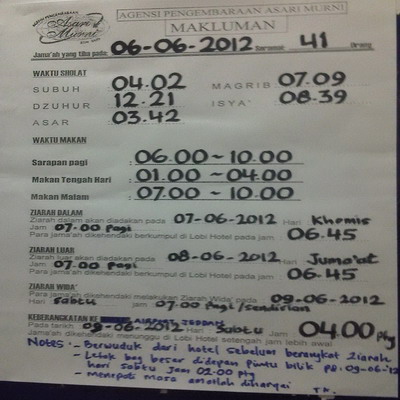 AGENSI PENGEMBARAAN ASARI MURNI
Asari Murni
MAKLUMAN
Jama'ah yang tiba pada: 06-06-2012 Seramai 41 Orang
WAKTU SHOLAT
SUBUH 04.02 MAGRIB 07.09
DZUHUR 12.21 ISYA' 08.39
ASAR 03.42
WAKTU MAKAN
Sarapan pagi : 06.00~10.00
Makan Tengah Hari : 01.00~04.00
Makan Malam : 07.00~10.00
ZIARAH DALAM
Ziarah dalam akan diadakan pada 07-06-2012 Hari Khamis
Jam 07.00 Pagi
Para jama'ah dikehendaki berkumpul di Lobi Hotel pada jam 06.45
ZIARAH LUAR
Ziarah luar akan diadakan pada 08-06-2012 Hari Juma'at
Jam 07.00 Pagi
Para jama'ah dikehendaki berkumpul di Lobi Hotel pada jam 06.45
ZIARAH WIDA'
Para jama'ah dikehendaki melakukan Ziarah Wida' pada 09-06-2012
Hari Sabtu Jam 07.00 Pagi/sendirian
KEBERANGKATAN KE AIRPORT JEDDAH
Pada tarikh 09-06-2012 Hari Sabtu Jam 04.00 Ptg
Jama'ah dikehendaki menunggu di Lobi Hotel setengah jam lebih awal
Notes : - Berwuduk dari hotel sebelum berangkat ziarah
- Letak bag besar didepan Pintu bilik PD: 09-06-12
hari sabtu jam 02.00 Ptg
- Menepati masa amatlah dihargai